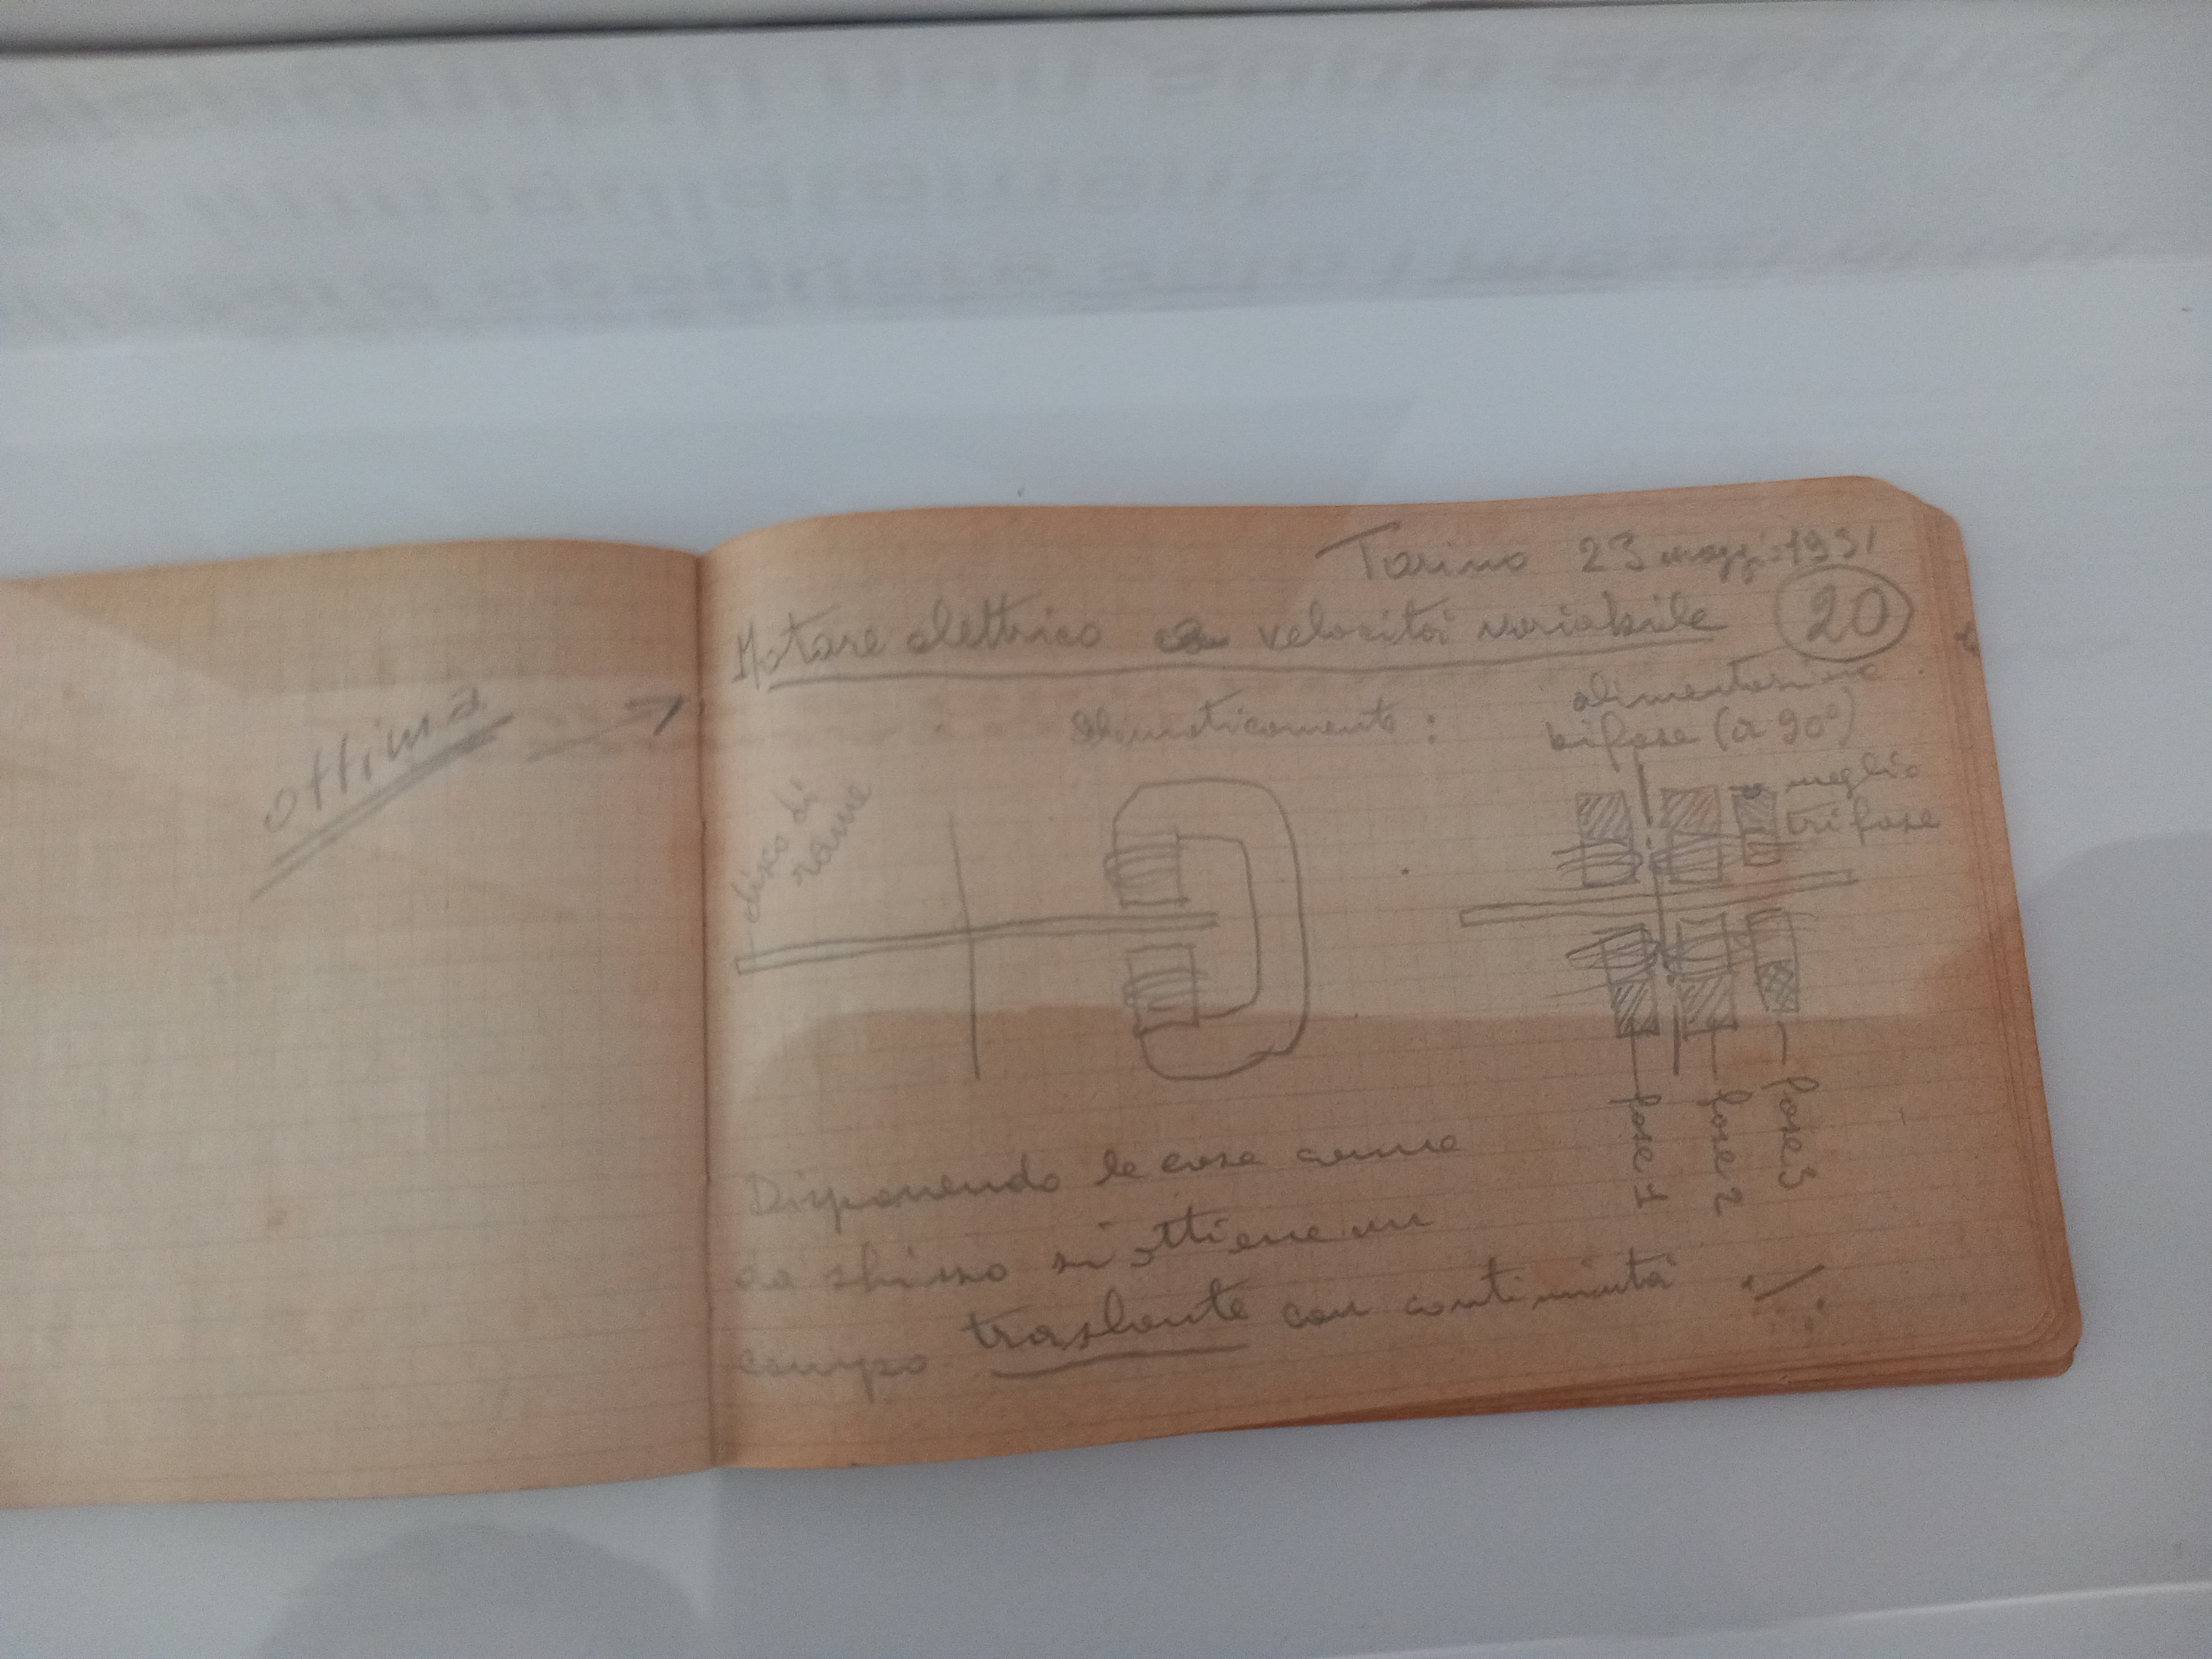 ottima
Torino 23 magg. 1931
Motore elettrico a velocità variabile 20
Schematicamente :
alimentazione
bifase (a 90°)
meglio
trifase
disco di
rame
fase 1
fase 2
fase 3
Disponendo le cose come
da schizzo si ottiene un
campo traslante con continuità